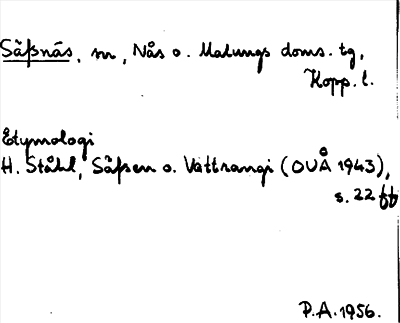 Säfsnäs, m, Nås o. Malungs doms. tg,
Kopp. l.
Etymologi
H. Ståhl, Säfsen o. Vattrangi (OUÅ 1943),
s. 22 ff
P.A. 1956.